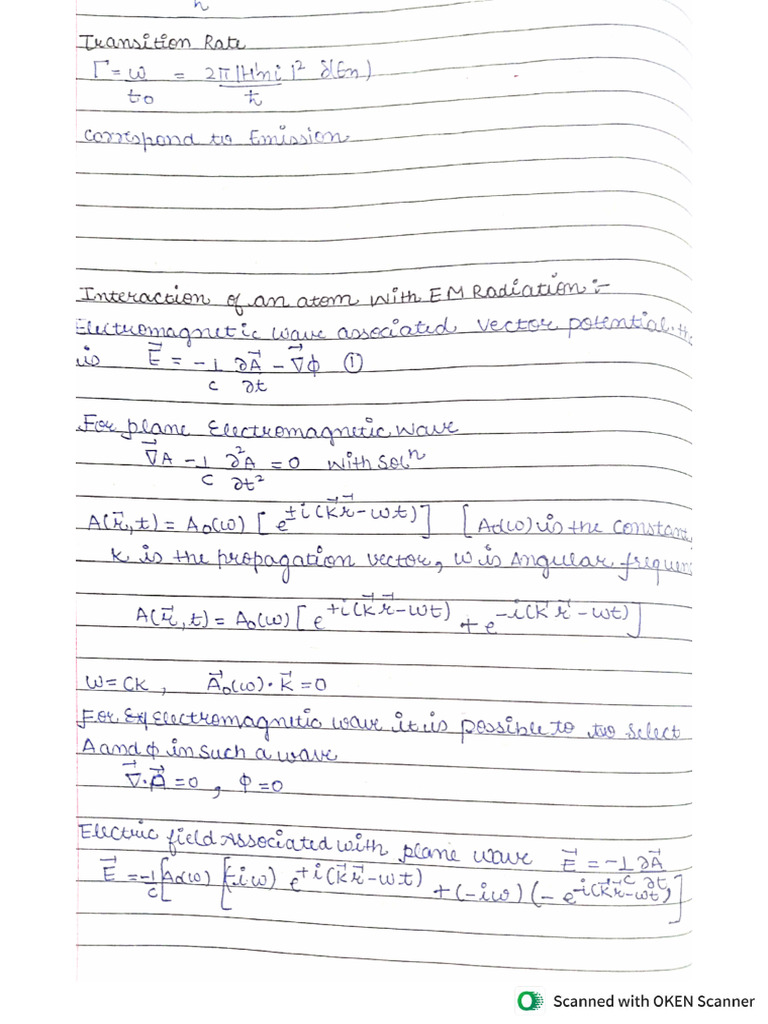 ħ
Transition Rate
Γ = w/t₀ = 2π|H'ni|²/ħ δ(En)
Correspond to Emission
Interaction of an atom with EM Radiation :-
Electromagnetic wave associated vector potential
is E⃗ = -1/c ∂A⃗/∂t - ∇⃗ϕ ①
For plane Electromagnetic wave
∇⃗A - 1/c ∂²A/∂t² = 0 with Solⁿ
A(r⃗,t) = A₀(ω) [e^±i(k⃗r⃗-ωt)] [A₀(ω) is the constant,
K is the propagation vector, ω is Angular frequen
A(r⃗,t) = A₀(ω) [e^+i(k⃗r⃗-ωt) + e^-i(k⃗r⃗-ωt)]
ω = ck , A⃗₀(ω)·k⃗ = 0
For Electromagnetic wave it is possible to to select
A and ϕ in such a wave
∇⃗·A⃗ = 0 , Φ = 0
Electric field Associated with plane wave E⃗ = -1/c ∂A⃗/∂t
E⃗ = -1/c [A₀(ω) [-iω) e^+i(k⃗r⃗-ωt) + (-iω) (-e^-i(k⃗r⃗-ωt)]
Scanned with OKEN Scanner